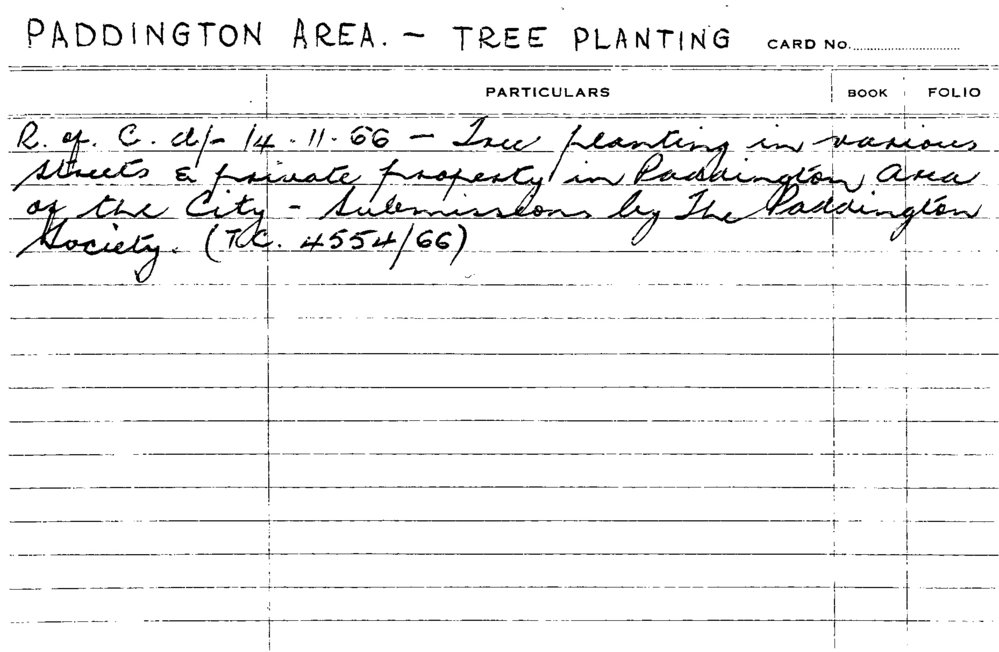 PADDINGTON AREA. - TREE PLANTING CARD No.
PARTICULARS BOOK FOLIO
R. of C. d/- 14.11.66 - Tree planting in various
streets & private property in Paddington Area
of the City - Submissions by The Paddington
Society. (T.C. 4554/66)